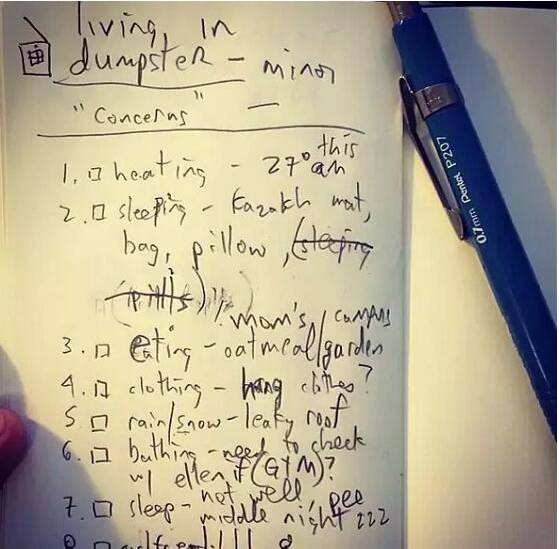 living in
dumpster - minor
"Concerns" -
1. heating - 27° this am
2. sleeping - Kazakh mat,
bag, pillow, (sleeping
pills)
3. eating - oatmeal/garden mom's/campus
4. clothing - hang clothes?
5 rain/snow - leaky roof
6. bathing - need to check
w/ ellen if (GYM)?
7. sleep - not well, pee
middle night zzz
8
0.7mm Pentel P207